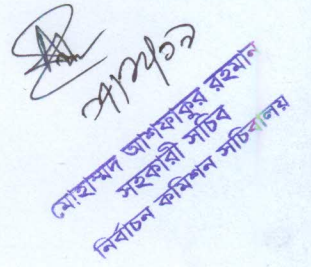 মোহাম্মদ আশফাকুর রহমান
সহকারী সচিব
নির্বাচন কমিশন সচিবালয়